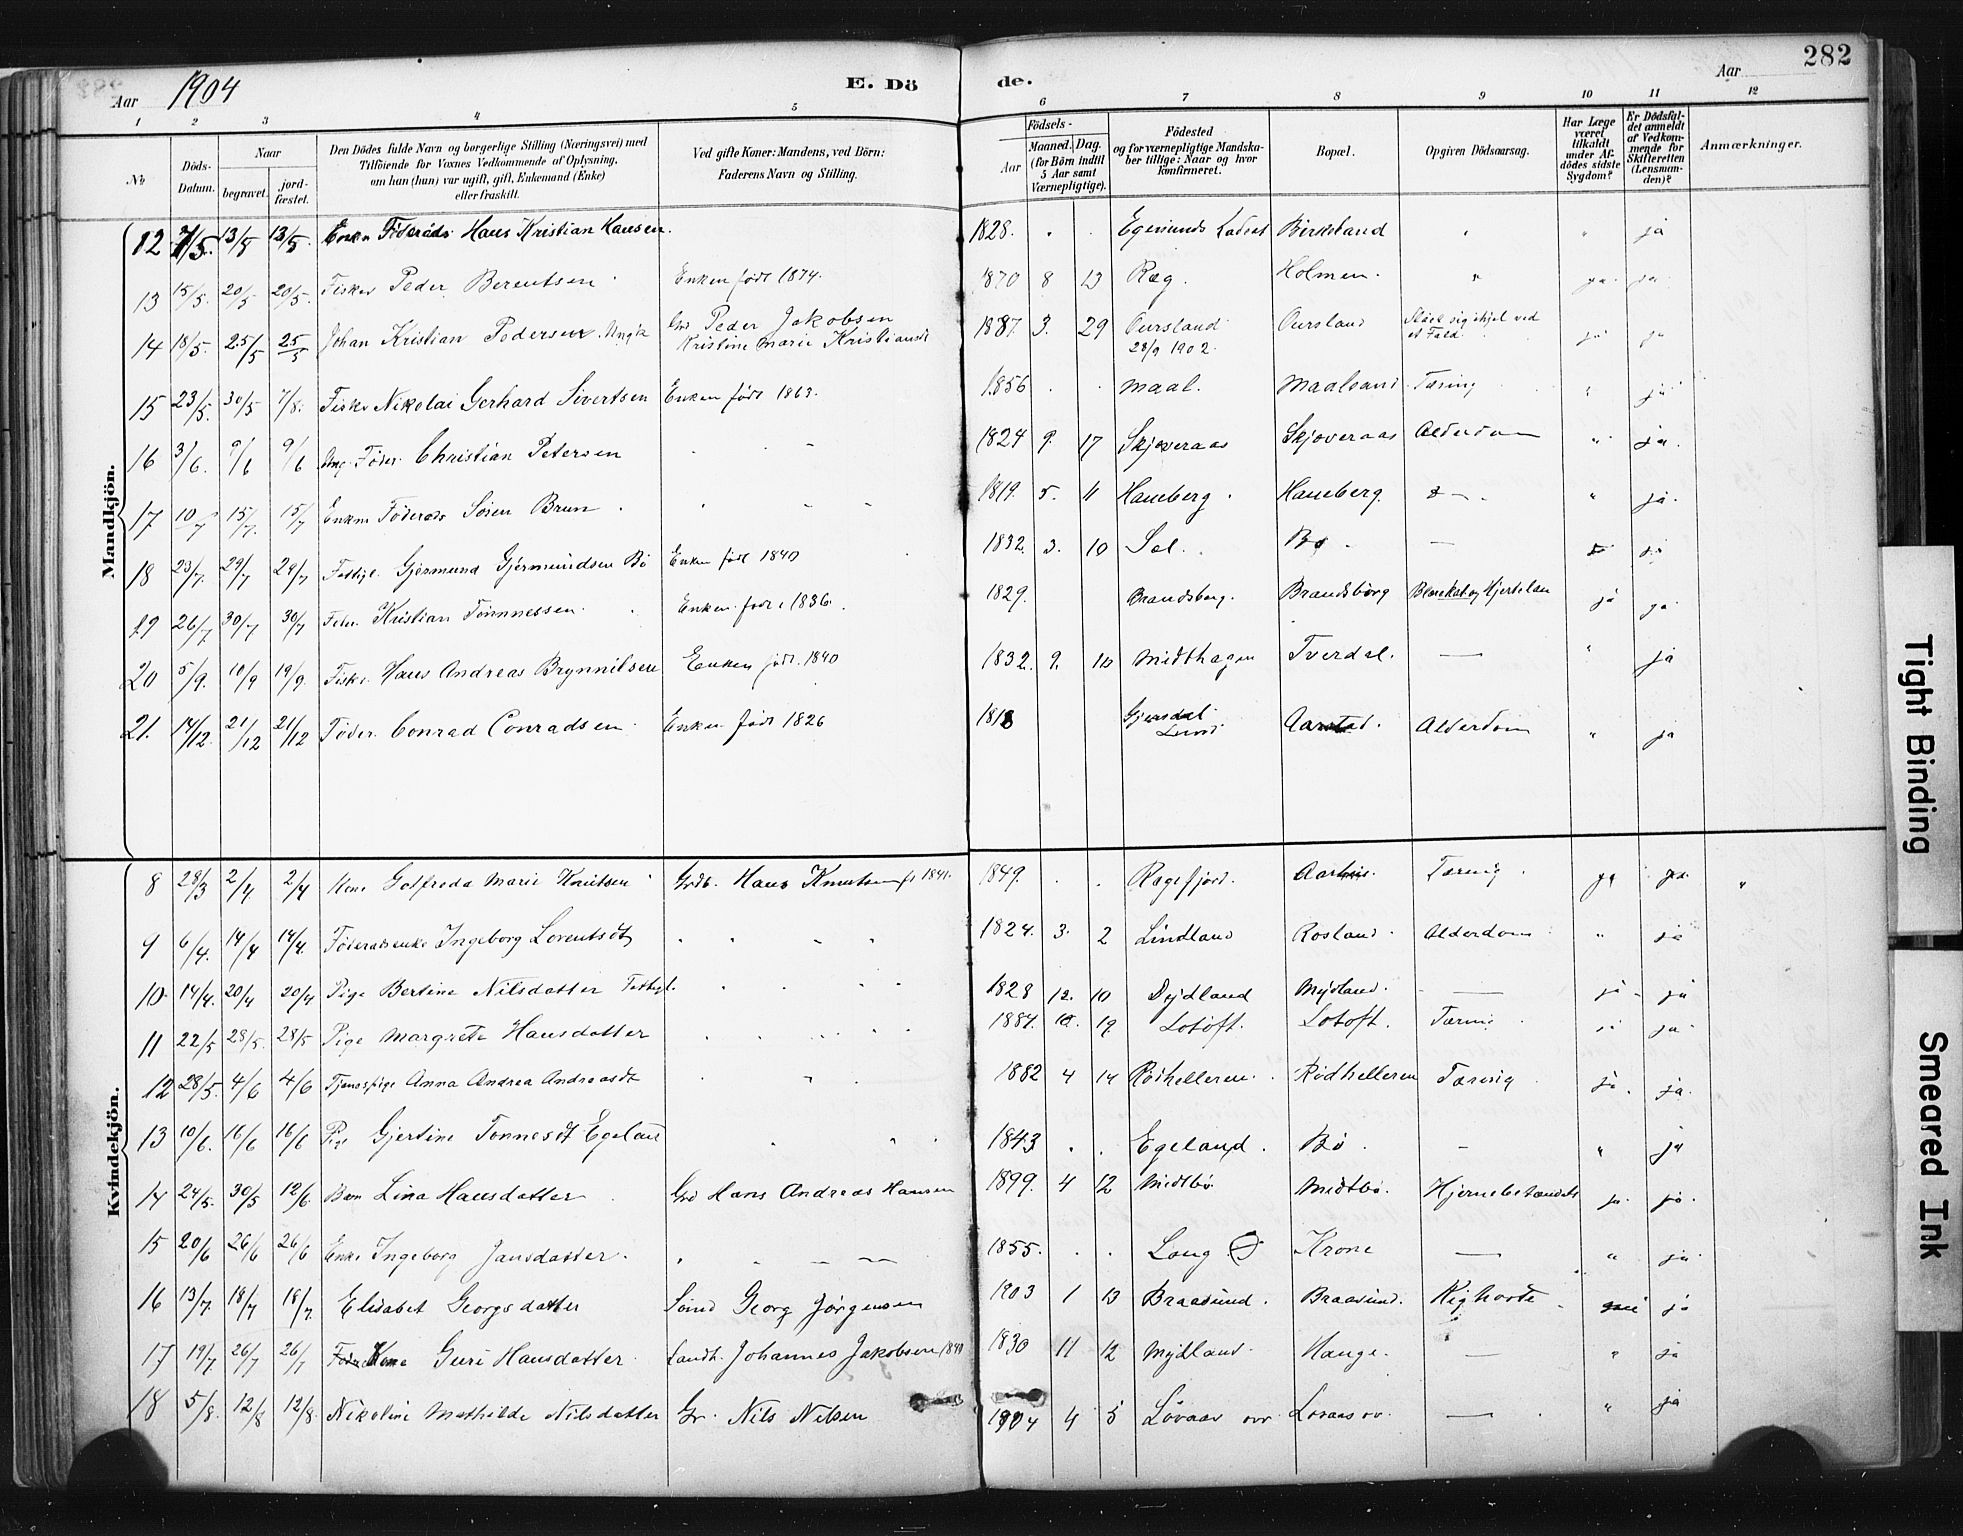 282
Aar 1904
E. Dö de.
Aar
1 2 3 4 5 6 7 8 9 10 11 12
No
Döds-Datum.
Naar
begravet.
jord-fæstet.
Den Dödes fulde Navn og borgerlige Stilling (Næringsvei) med
Tilföiende för Voxnes Vedkommende af Oplysning,
om han (hun) var ugift, gift, Enkemand (Enke)
eller fraskilt.
Ved gifte Koner: Mandens, ved Börn:
Faderens Navn og Stilling.
Födsels-
Aar
Maaned. Dag.
(for Börn indtil
5 Aar samt
Værnepligtige).
Födested
og for værnepligtige Mandska-
ber tillige: Naar og hvor
konfirmeret.
Bopæl.
Opgiven Dödsaarsag.
Har Læge
været
tilkaldt
under Af-
dödes sidste
Sygdom?
Er Dödsfal-
det anmeldt
af Vedkom-
mende for
Skifteretten
(Lensman-
den)?
Anmærkninger.
Mandkjön.
12 7/5. 13/5 13/5. Enkm Föderåds Hans Kristian Hansen. 1828. Egersunds Ladest Birkeland " ja
13 15/5. 20/5 20/5. Fisker Peder Berentsen Enken födt 1874. 1870 8 13 Ræg. Holmen. " ja. ja.
14 18/5. 25/5 25/5 Johan Kristian Pedersen. Ungk Grd Peder Jakobsen 1887. 3. 29 Oursland Oursland Slået sig ihjel ved ja ja
Kristine Marie Kristiansdt 28/9 1902. et Fald.
15 23/5. 30/5 7/8. Fisker Nikolai Gerhard Sivertsen Enken födt 1863. 1856 Maal. Maalsand Tæring " ja
16 3/6. 9/6 9/6 Ung. Föder. Christian Petersen 1824 9. 17 Skjæveraas Skjæveraas Alderdom " ja.
17 10/7 15/7. 15/7 Enkm Föderåds Sören Brun 1819. 5. 11 Haneberg. Haneberg. " ja.
18 23/7. 29/7 29/7 Fattigl. Gjermund Gjermundsen Bö Enken födt 1840 1832. 3. 10 Sel. Bö. — ja
19 26/7 30/7 30/7 Föder. Kristian Tönnessen. Enken födt 1836. 1829. Brandsberg. Brandsberg ja ja
20 5/9. 10/9 19/9. Fisker Hans Andreas Brynnilsen Enken födt. 1840 1832. 9. 10 Midthagen Tverdal. — " ja
21. 14/12. 21/12 21/12 Föder. Conrad Conradsen. Enken födt 1826 1818 Gjersdal Aarstad. Alderdom " ja
Lund.
Kvindekjön.
8 28/3 2/4. 2/4 Kone Golfreda Marie Knutsen Grdb. Hans Knutsen f. 1841. 1849. Rægefjord. Tæring ja ja. "
9 6/4. 14/4 14/4. Föderadsenke Ingeborg Lorentsdt 1824. 3. 2 Lindland Rosland Alderdom " ja
10. 14/4. 20/4 20/4 Pige Bertine Nilsdatter Fattigl. 1828 12. 10 Dydland Mydland. — ja ja
11 22/5 28/5. 28/5 Pige Margrete Hansdatter 1884. 19. Lotoft. Lotoft. Tæring ja ja
12 28/5. 4/6 4/6 Tjenestpige Anna Andrea Andreasdt 1882 4 14 Rödhelleren. Rödhelleren Tæring ja. ja.
13 10/6. 16/6 16/6 Pige Gjertine Tönnesdt Egeland 1843 Egeland. Bö. — " ja
14 24/5. 30/5 12/6 Barn Lina Hansdatter Grd Hans Andreas Hansen 1899. 4 12 Midtbö Midtbö. Hjernebetændels ja. ja.
15 20/6 26/6 26/6 Enke Ingeborg Jansdatter. 1855. Laug Krone — " ja
16 13/7. 18/7 18/7. Elisabet Georgsdatter Sömd Georg Jörgensen 1903 1 13 Braasund. Braasund. Kighoste ja
17 19/7 26/7 26/7 Kone Guri Hansdatter. Landh. Johannes Jakobsen 1840 1830 11 12 Mydland. Hauge. — " ja
18 5/8. 12/8 12/8. Nikoline Mathilde Nilsdatter Gr. Nils Nilsen 1904 4 5 Lövaas övr Lovaas ov. — " ja
Tight Binding
Smeared Ink